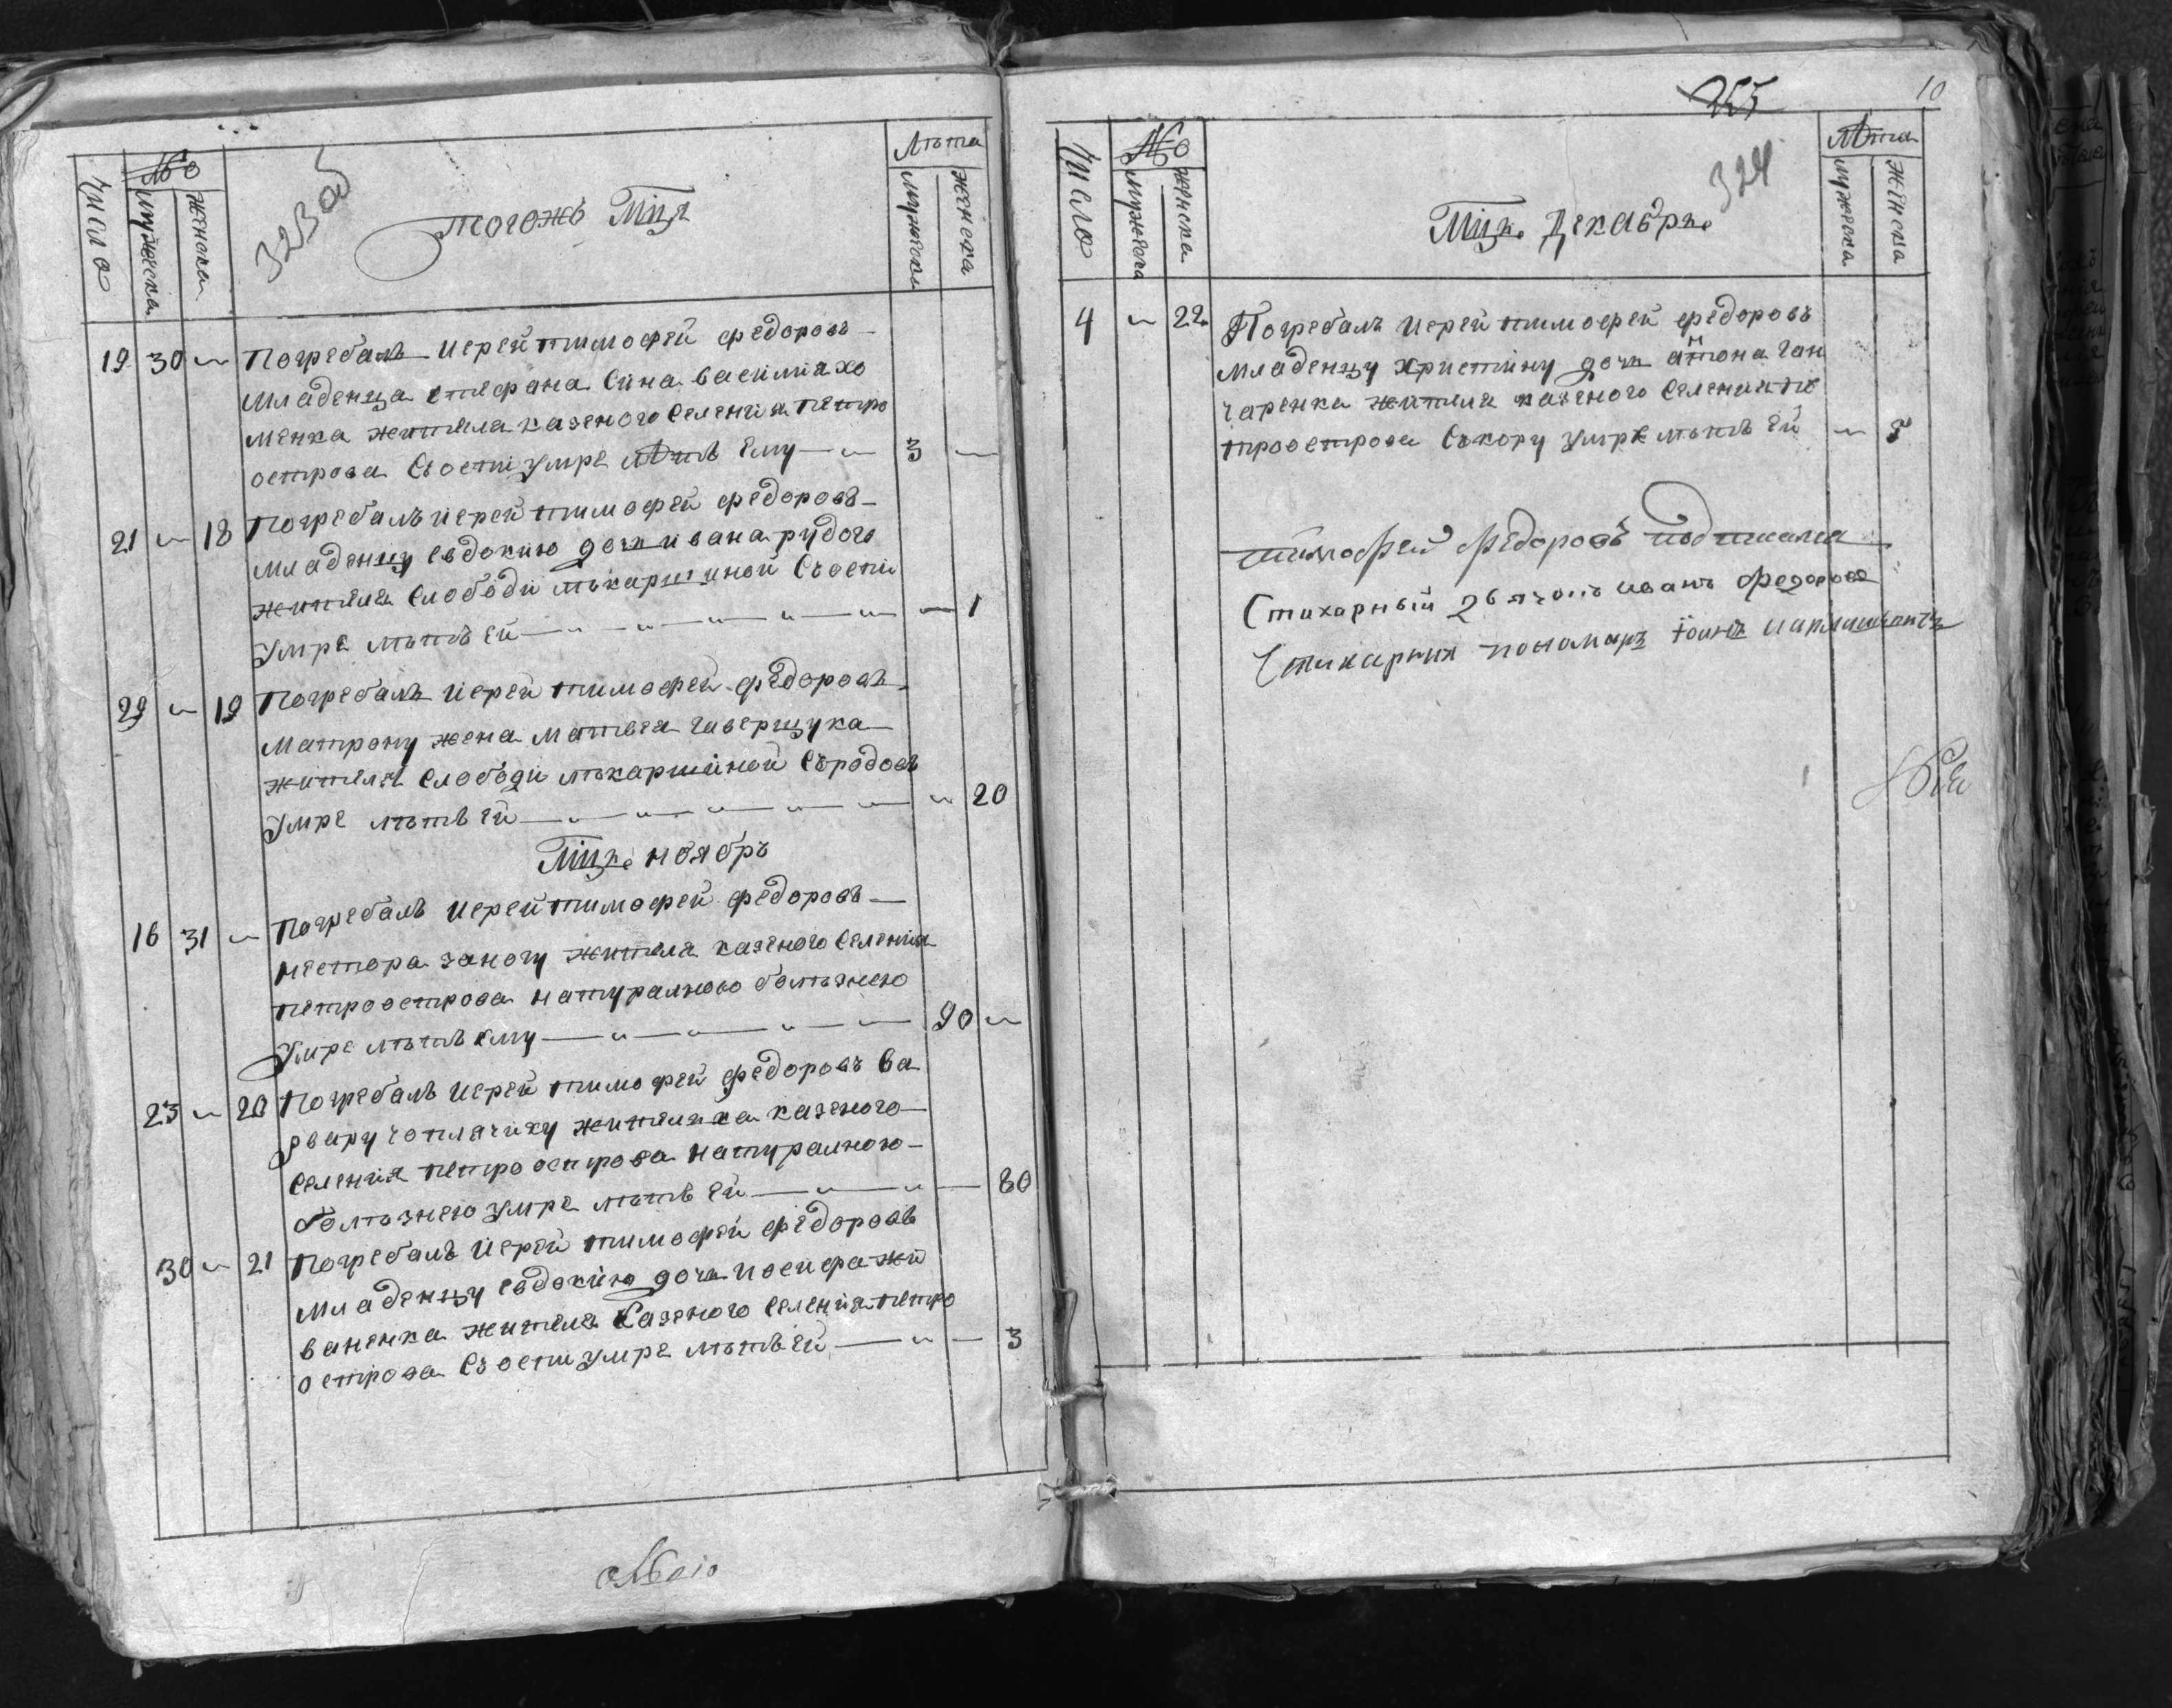 323об
Число
№о
мужеска
женска
тогожъ Мця
Лѣта
мужеска
женска
19 30 Погребалъ иерей тимофей федоровъ
младенца стефана сина василия хо
менка жителя казеного селения петро
острова Съоспи умре лѣтъ ему 3
21 18 Погребалъ иерей тимофей федоровъ
младенцу евдокию дочь ивана рудого
жителя слободи лѣкаршиной Съоспи
умре лѣтъ ей 1
29 19 Погребалъ иерей тимофей федоровъ
матрону жена матвея гаверщука
жителя слободи лѣкаршиной Съродовъ
умре лѣтъ ей 20
Мцъ ноябръ
16 31 Погребалъ иерей тимофей федоровъ
нестора заногу жителя казеного селения
петроострова натуралною болѣзнею
умре лѣтъ ему 90
23 20 Погребалъ иерей тимофей федоровъ ва
рвару чоплячиху жителька казеного
селения петроострова натуралною
болѣзнею умре лѣтъ ей 80
30 21 Погребалъ иерей тимофей федоровъ
младенцу евдокию дочь иосифа жи
ваненка жителя казеного селения петро
острова Съоспи умре лѣтъ ей 3
10
324
Число
№о
мужеска
женска
Мцъ Декабръ
лѣта
мужеска
женска
4 22 Погребалъ иерей тимофей федоровъ
младенцу христину дочь антона ган
чаренка жителя казеного селения пе
троострова Съкору умре лѣтъ ей 5
тимофей федоровъ подписалъ
Стихарный дьячокъ иванъ федоровъ
Стихарния пономаръ